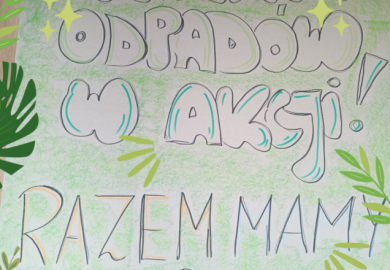 ODPADÓW
W AKCJI!
RAZEM MAMY